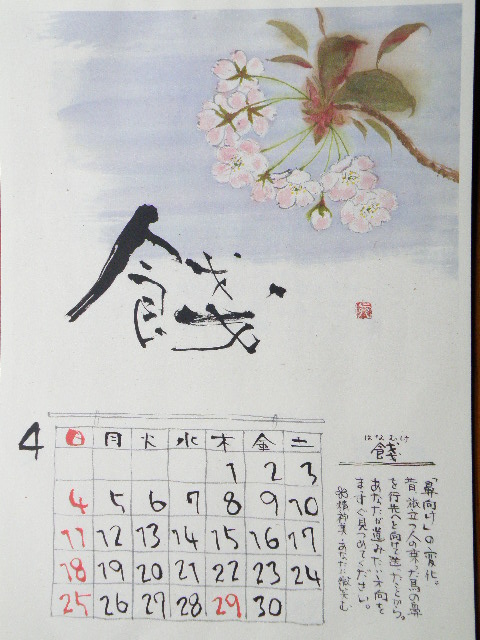 餞
4
日 月 火 水 木 金 土
1 2 3
4 5 6 7 8 9 10
11 12 13 14 15 16 17
18 19 20 21 22 23 24
25 26 27 28 29 30
はなむけ
餞
「鼻向け」の変化。
昔 旅立つ人の乗った馬の鼻
を行先へと向けて送ったことから。
あなたが進みたい方向を
まっすぐ見つめてください。
あなたに微笑む